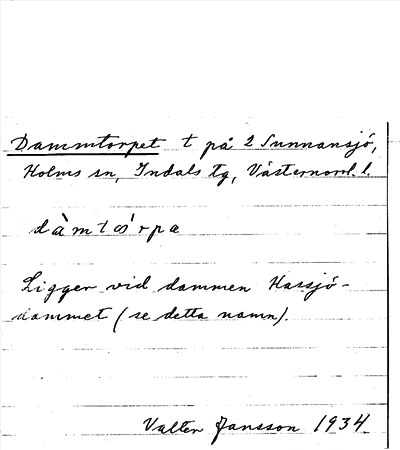 Dammtorpet t på 2 Sunnansjö,
Holms sn, Indals tg, Västernorrl. l.
dàmtó̤rpa
Ligger vid dammen Hassjö-
dammet (se detta namn).
Valter Jansson 1934.